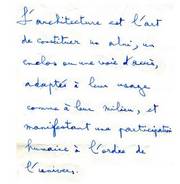 L'architecture est l'art
de constituer un abri, un
enclos ou une voie d'accès,
adaptés à leur usage
comme à leur milieu, et
manifestant une participation
humaine à l'ordre de
l'univers.